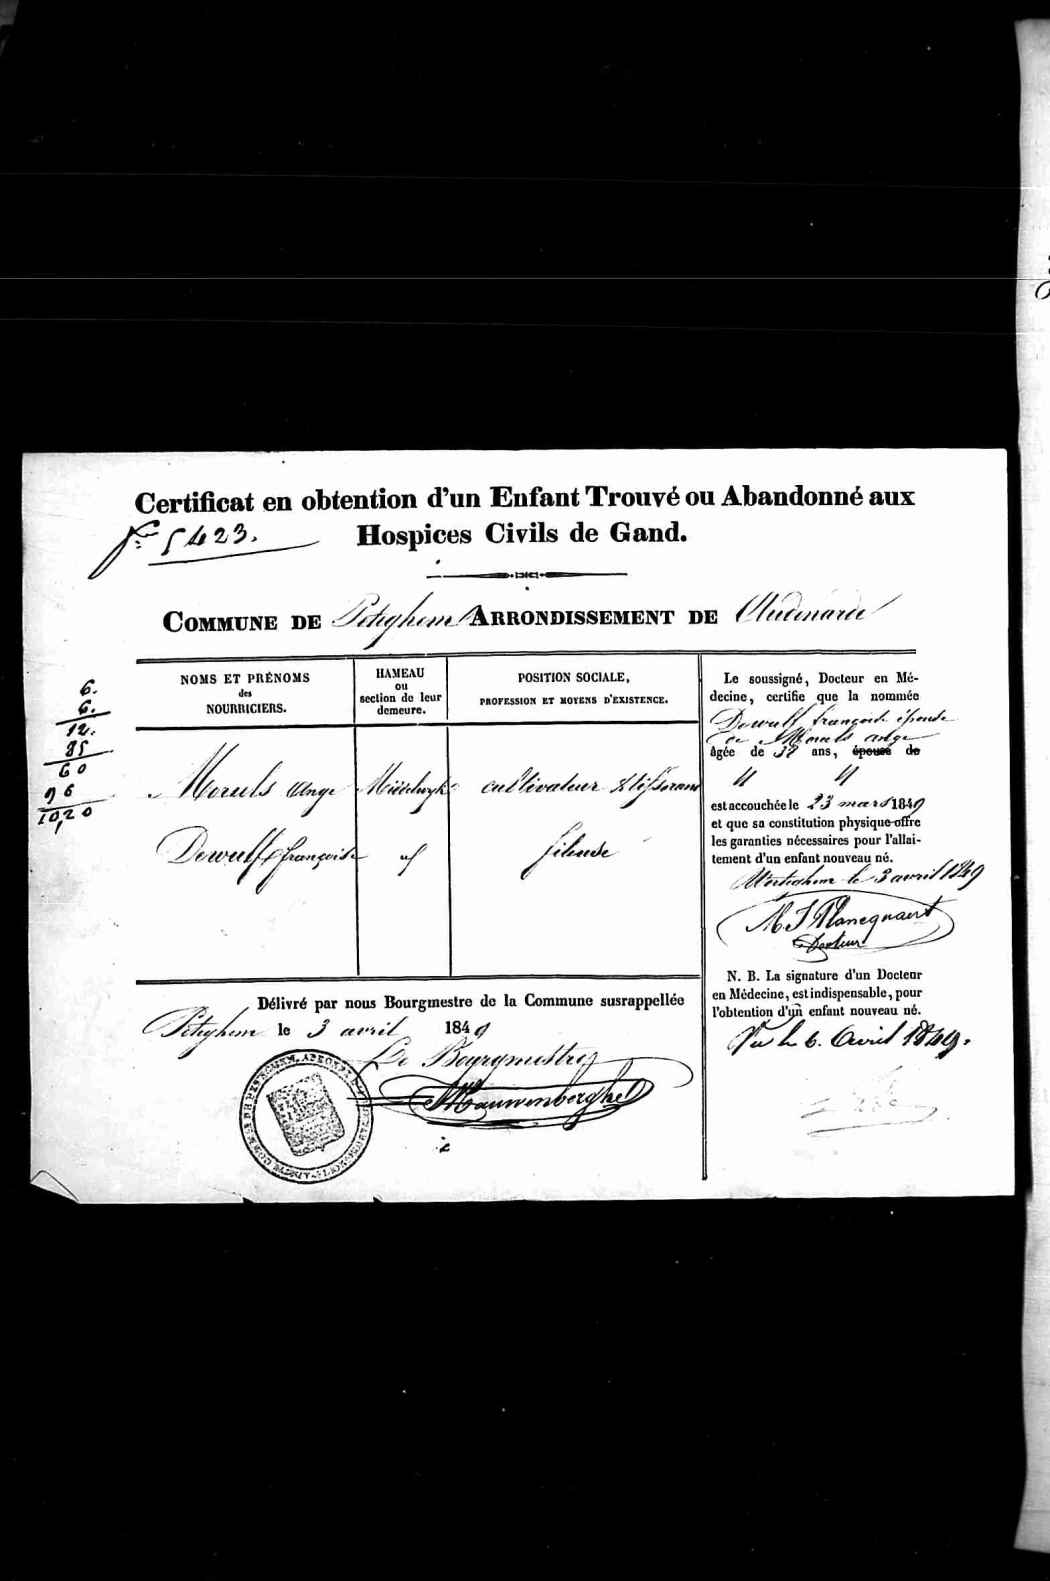 Certificat en obtention d'un Enfant Trouvé ou Abandonné aux
Hospices Civils de Gand.
5423.
COMMUNE DE Peteghem ARRONDISSEMENT DE Audenarde
NOMS ET PRÉNOMS
des
NOURRICIERS.
HAMEAU
ou
section de leur
demeure.
POSITION SOCIALE,
PROFESSION ET MOYENS D'EXISTENCE.
6.
6.
12.
85
60
96
10,20
Ange cultivateur &
Dewulf françoise fileuse
Le soussigné, Docteur en Mé-
decine, certifie que la nommée
Dewulf françoise épouse
de ange
âgée de ans, épouse de
est accouchée le 23 mars 1849
et que sa constitution physique offre
les garanties nécessaires pour l'allai-
tement d'un enfant nouveau né.
le 3 avril 1849
Docteur
N. B. La signature d'un Docteur
en Médecine, est indispensable, pour
l'obtention d'un enfant nouveau né.
Vu le 6. Avril 1849.
Délivré par nous Bourgmestre de la Commune susrappellée
Peteghem le 3 avril 1849
Le Bourgmestre